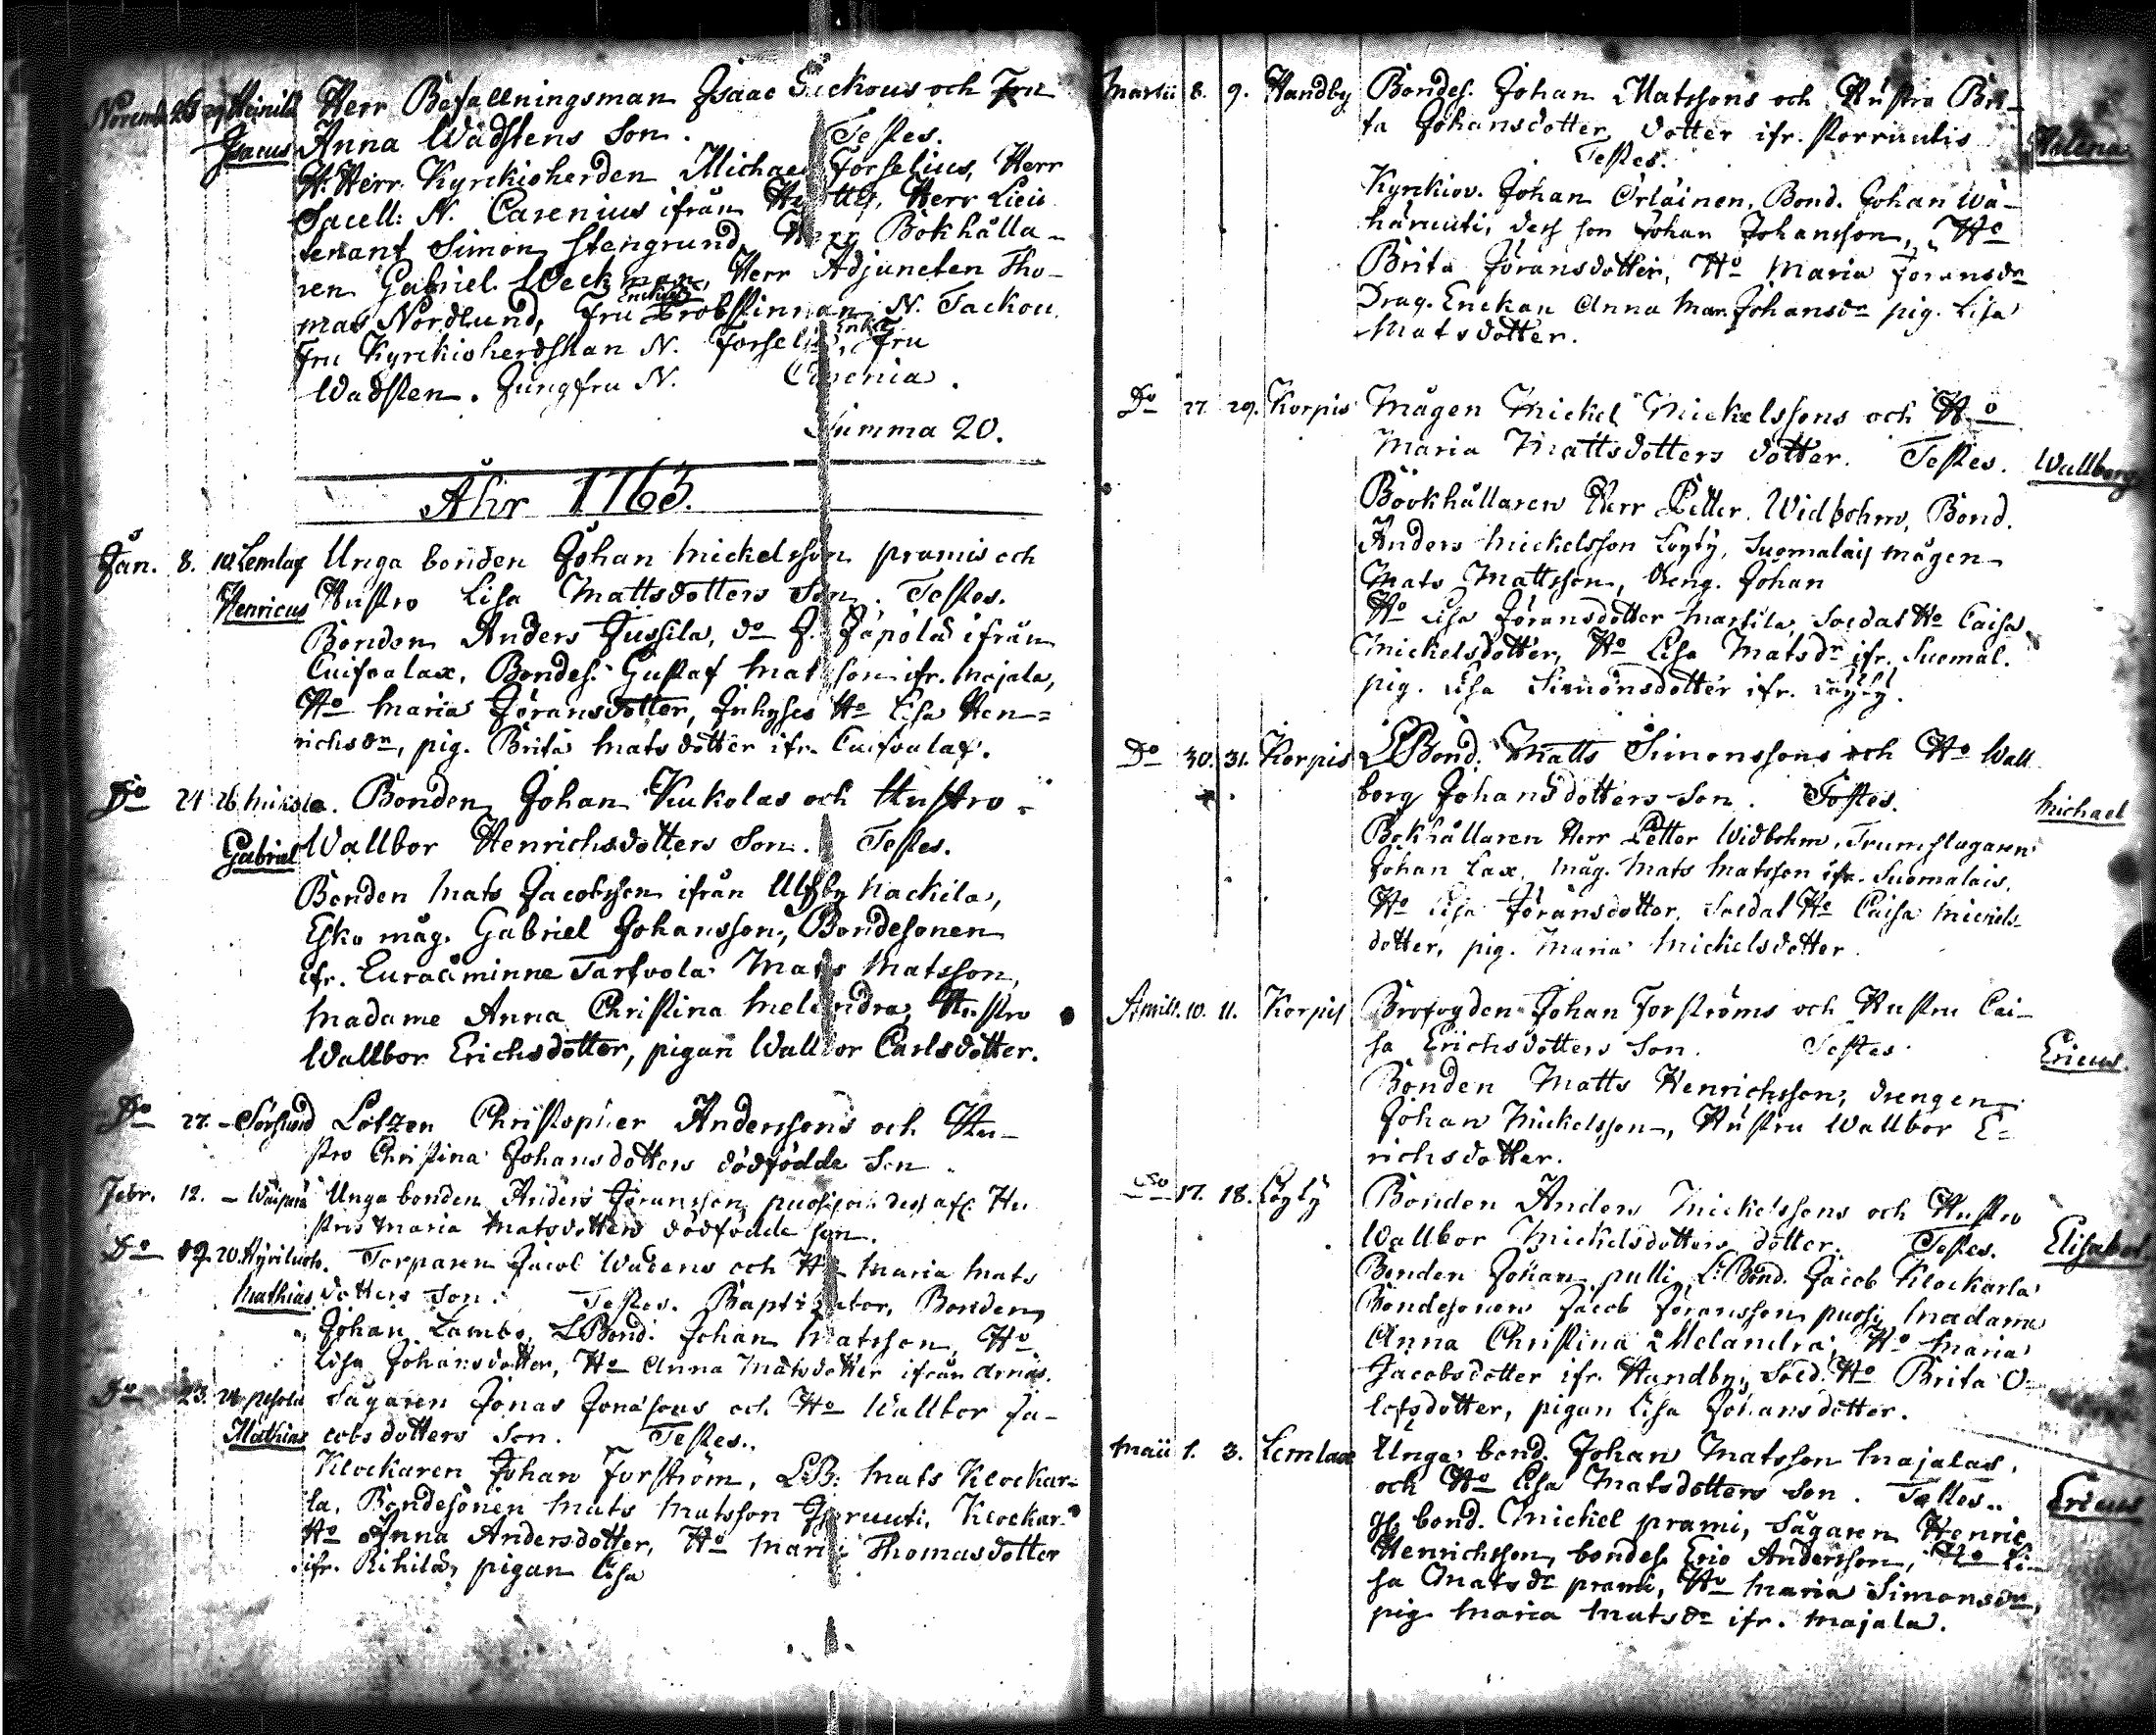 Novemb. 26 29 Heinilä Herr Befallningsman Isaac Tackous och Fru
Isacus Anna Wadstens Son. Testes.
H. Herr Kyrckioherden Michael Forselius, Herr
Sacell: N. Carenius ifrån Herr Lieu
tenant Simon Stengrund, Herr Bokhålla-
ren Gabriel Weckman, Herr Adjuncten Tho-
Enckie
mas Nordlund, Fru Probstinnan N. Tackou
Enk.
Fru Kyrckioherdskan N. Forselia, Fru
Wadsten. Jungfru N. Carenia.
Summa 20.
Åhr 1763.
Jan. 8. 10 Lemlax Unga bonden Johan Mickelsson pramis och
Henricus Hustro Lisa Mattsdotters Son. Testes.
Bonden Anders Jussila, do J. Jäpölä ifrån
Cuifvalax, Bondes. Gustaf Matsson ifr. Majala,
Ho Maria Jöransdotter, Inhyses Ho Lisa Hen=
richsdr, pig. Brita Matsdotter ifr. Cuifvalax.
Do 24 26 Bonden Johan Kukolas och Hustro
Gabriel Wallbor Henrichsdotters Son. Testes.
Bonden Mats Jacobsson ifrån Ulfsby Hackila,
Esko måg. Gabriel Johansson, Bondesonen
ifr. Euraåminne Tarfvola Mats Matsson,
Madame Anna Christina Melandra, Hustro
Wallbor Erichsdotter, pigan Wallbor Carlsdotter.
Do 27. - Sörsund Lotzen Christopher Anderssons och Hu-
stro Christina Johansdotters dödfödde Son.
Febr. 12. - Unga bonden Anders Joransson dess afl. Hu
stru Maria Matsdotters dödfödde son.
Do 19. 20. Torparen Jacob Wadens och Ho Maria Mats
Mathias dotters Son. Testes. Baptizator, Bonden
Johan Lambo, LBond. Johan Matsson, Ho
Lisa Johansdotter, Ho Anna Matsdotter ifrån Arnäs.
Do 23. 24 Sågaren Jonas Jonassons och Ho Wallbor Ja-
Mathias cobsdotters Son. Testes.
Klockaren Johan Forström, LB: Mats Klockar-
la, Bondesonen Mats Matsson Klockar.
Ho Anna Andersdotter, Ho Maria Thomasdotter
ifr. Rihilä, pigan Lisa
Martii 8. 9. Handby Bondes. Johan Matssons och Hustro Bri-
ta Johansdotter, dotter ifr. Porruutis Helena
Testes.
Kyrckiov. Johan Örläinen, Bond. Johan Wä-
häruuti, dess son Johan Johansson, Ho
Brita Jöransdotter, Ho Maria Joransdr
Drag. Enckan Anna Mar. Johansdr pig. Lisa
Matsdotter.
Do 27. 29. Korpis Mågen Mickel Mickelssons och Ho
Maria Mattsdotters dotter. Testes. Wallborg
Bookhållaren Herr Petter Widbohm, Bond.
Anders Mickelsson Löyty, Suomalais mågen
Mats Mattsson, dreng. Johan
Ho Lisa Jöransdotter Marsila, Soldat Ho Caisa
Mickelsdotter, Ho Lisa Matsdr ifr. Suomal.
pig. Lisa Simonsdotter ifr. Löyty.
Do 30. 31. Korpis LBond. Matts Simonssons och Ho Wall
borg Johansdotters son. Testes. Michael
Bokhållaren Herr Petter Widbohm, Trumslagaren
Johan Lax, måg. Mats Matsson ifr. Suomalais,
Ho Lisa Jöransdotter, Soldat Ho Caisa Mickels-
dotter, pig. Maria Mickelsdotter.
10. 11. Korpis Brofogden Johan Forströms och Hustru Cai-
sa Erichsdotters Son. Testes. Ericus
Bonden Matts Henrichsson, drengen
Johan Mickelsson, Hustru Wallbor E=
richsdotter.
Do 17. 18. Löyty Bonden Anders Mickelssons och Hustro
Wallbor Mickelsdotters dotter. Testes. Elisabet
Bonden Johan pulli, L. Bond. Jacob Klockarla
Bondesonen Jacob Joransson pussi, Madame
Anna Christina Melandra, Ho Maria
Jacobsdotter ifr. Handby, Sold. Ho Brita O-
lofsdotter, pigan Lisa Johansdotter.
Maii 1. 3. Lemlax Unga bond. Johan Matsson Majalas,
och Ho Lisa Matsdotters son. Testes. Ericus
bond. Mickel prami, Sågaren Henric
Henrichsson, bondes. Eric Andersson, Ho Li-
sa Matsdr prami, Ho Maria Simonsdr,
pig. Maria Matsdr ifr. Majala.